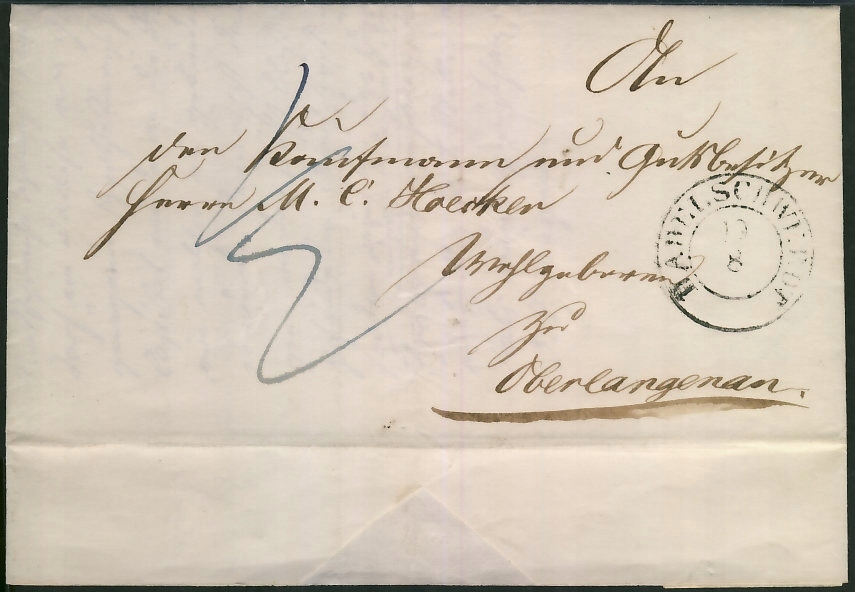 An
den Kaufmann und Gutsbesitzer
Herrn M. C. Hoecker
Wohlgeboren
zu
Oberlangenau.
HABELSCHWERDT
8